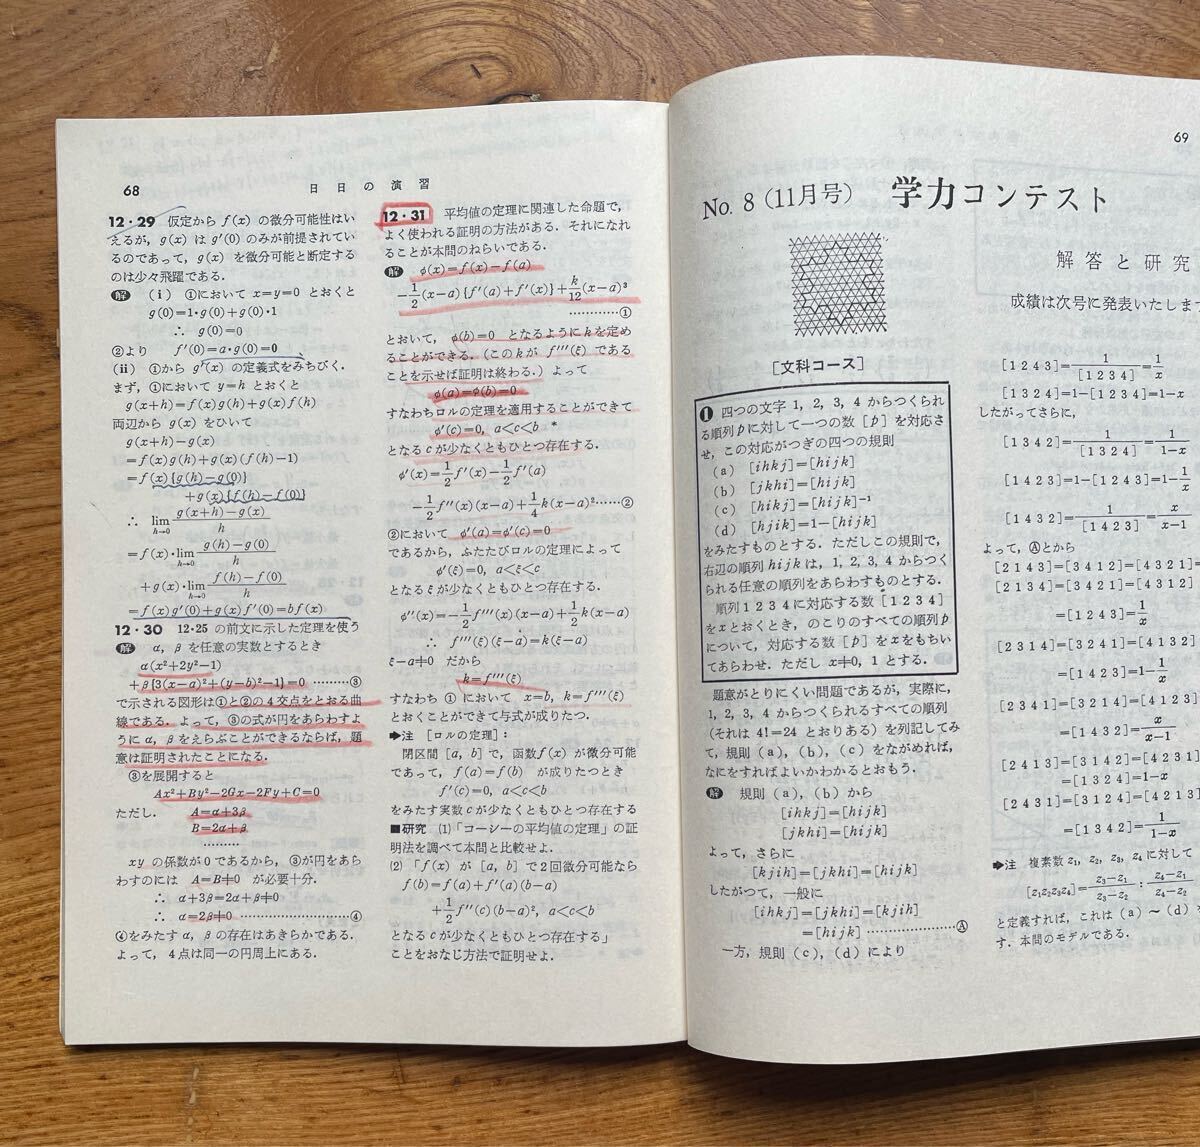 68
日日の演習
12・29 仮定から f(x) の微分可能性はい
えるが，g(x) は g′(0) のみが前提されてい
るのであって，g(x) を微分可能と断定する
のは少々飛躍である．
解 (i) ①において x=y=0 とおくと
g(0)=1・g(0)+g(0)・1
∴ g(0)=0
②より f′(0)=a・g(0)=0
(ii) ①から g′(x) の定義式をみちびく．
まず，①において y=h とおくと
g(x+h)=f(x)g(h)+g(x)f(h)
両辺から g(x) をひいて
g(x+h)−g(x)
=f(x)g(h)+g(x)(f(h)−1)
=f(x){g(h)−g(0)}
+g(x){f(h)−f(0)}
∴ lim_{h→0} (g(x+h)−g(x))/h
=f(x)・lim_{h→0} (g(h)−g(0))/h
+g(x)・lim_{h→0} (f(h)−f(0))/h
=f(x)g′(0)+g(x)f′(0)=bf(x)
12・30 12・25 の前文に示した定理を使う
解 α，β を任意の実数とするとき
α(x²+2y²−1)
+β{3(x−a)²+(y−b)²−1}=0 ………③
で示される図形は①と②の4交点をとおる曲
線である．よって，③の式が円をあらわすよ
うに α，β をえらぶことができるならば，題
意は証明されたことになる．
③を展開すると
Ax²+By²−2Gx−2Fy+C=0
ただし． A=α+3β
B=2α+β
………
xy の係数が0であるから，③が円をあら
わすのには A=B≠0 が必要十分．
∴ α+3β=2α+β≠0
∴ α=2β≠0 ………………④
④をみたす α，β の存在はあきらかである．
よって，4点は同一の円周上にある．
12・31 平均値の定理に関連した命題で，
よく使われる証明の方法がある．それになれ
ることが本問のねらいである．
解 φ(x)=f(x)−f(a)
−1/2(x−a){f′(a)+f′(x)}+k/12(x−a)³
…………①
とおいて，φ(b)=0 となるように k を定め
ることができる．（この k が f‴(ξ) である
ことを示せば証明は終わる．）よって
φ(a)=φ(b)=0
すなわちロルの定理を適用することができて
φ′(c)=0, a<c<b *
となる c が少なくともひとつ存在する．
φ′(x)=1/2f′(x)−1/2f′(a)
−1/2f″(x)(x−a)+1/4k(x−a)²……②
②において φ′(a)=φ′(c)=0
であるから，ふたたびロルの定理によって
φ″(ξ)=0, a<ξ<c
となる ξ が少なくともひとつ存在する．
φ″(x)=−1/2f‴(x)(x−a)+1/2k(x−a)
∴ f‴(ξ)(ξ−a)=k(ξ−a)
ξ−a≠0 だから
k=f‴(ξ)
すなわち ① において x=b, k=f‴(ξ)
とおくことができて与式が成りたつ．
➡注 ［ロルの定理］：
閉区間 [a, b] で，函数 f(x) が微分可能
であって，f(a)=f(b) が成りたつとき
f′(c)=0, a<c<b
をみたす実数 c が少なくともひとつ存在する
■研究 (1)「コーシーの平均値の定理」の証
明法を調べて本問と比較せよ．
(2) 「f(x) が [a, b] で2回微分可能なら
f(b)=f(a)+f′(a)(b−a)
+1/2f″(c)(b−a)², a<c<b
となる c が少なくともひとつ存在する」
ことをおなじ方法で証明せよ．
69
No. 8（11月号） 学力コンテスト
解答と研究
成績は次号に発表いたします
［文科コース］
❶ 四つの文字 1, 2, 3, 4 からつくられ
る順列 p に対して一つの数［p］を対応さ
せ，この対応がつぎの四つの規則
(a) [ihkj]=[hijk]
(b) [jkhi]=[hijk]
(c) [hikj]=[hijk]⁻¹
(d) [hjik]=1−[hijk]
をみたすものとする．ただしこの規則で，
右辺の順列 hijk は，1, 2, 3, 4 からつく
られる任意の順列をあらわすものとする．
順列 1 2 3 4 に対応する数［1 2 3 4］
を x とおくとき，のこりのすべての順列 p
について，対応する数［p］を x をもちい
てあらわせ．ただし x≠0, 1 とする．
題意がとりにくい問題であるが，実際に，
1, 2, 3, 4 からつくられるすべての順列
（それは 4!=24 とおりある）を列記してみ
て，規則 (a), (b), (c) をながめれば，
なにをすればよいかわかるとおもう．
解 規則 (a), (b) から
[ihkj]=[hijk]
[jkhi]=[hijk]
よって，さらに
[kjih]=[jkhi]=[hijk]
したがって，一般に
[ihkj]=[jkhi]=[kjih]
=[hijk] ………………Ⓐ
一方，規則 (c), (d) により
[1 2 4 3]=1/[1 2 3 4]=1/x
[1 3 2 4]=1−[1 2 3 4]=1−x
したがってさらに，
[1 3 4 2]=1/[1 3 2 4]=1/(1−x)
[1 4 2 3]=1−[1 2 4 3]=1−1/x
[1 4 3 2]=1/[1 4 2 3]=x/(x−1)
よって，Ⓐとから
[2 1 4 3]=[3 4 1 2]=[4 3 2 1]
[2 1 3 4]=[3 4 2 1]=[4 3 1 2]
=[1 2 4 3]=1/x
[2 3 1 4]=[3 2 4 1]=[4 1 3 2]
=[1 4 2 3]=1−1/x
[2 3 4 1]=[3 2 1 4]=[4 1 2 3]
=[1 4 3 2]=x/(x−1)
[2 4 1 3]=[3 1 4 2]=[4 2 3 1]
=[1 3 2 4]=1−x
[2 4 3 1]=[3 1 2 4]=[4 2 1 3]
=[1 3 4 2]=1/(1−x)
➡注 複素数 z₁, z₂, z₃, z₄ に対して
[z₁z₂z₃z₄]=(z₃−z₁)/(z₃−z₂) : (z₄−z₁)/(z₄−z₂)
と定義すれば，これは (a)～(d) を
す．本問のモデルである．